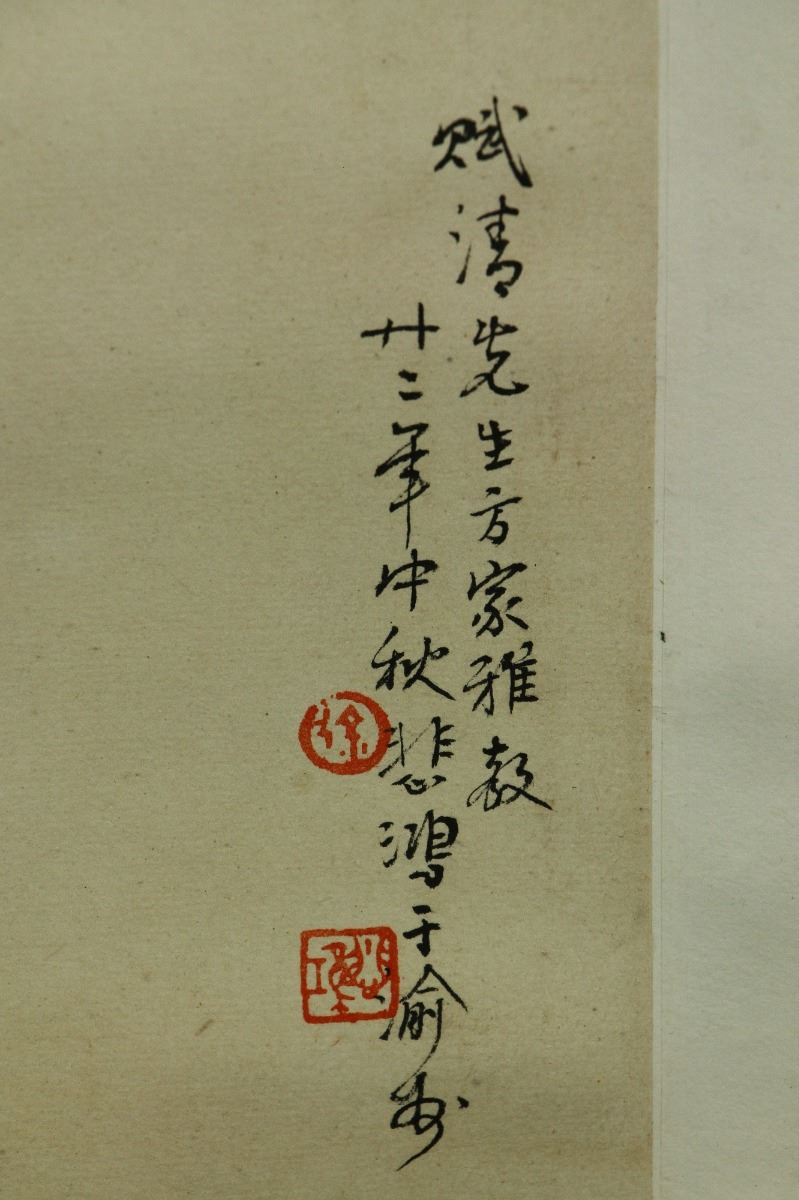 赋清先生方家雅教
廿二年中秋悲鸿于渝州
徐